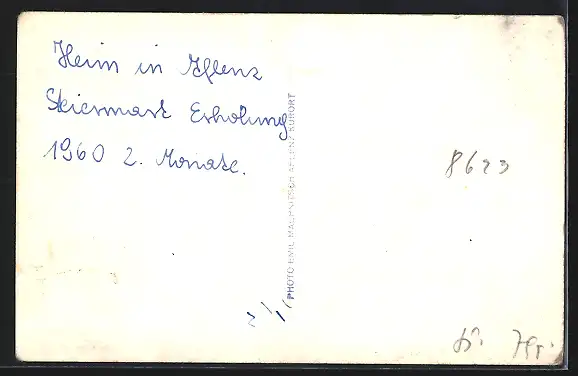 Heim in Aflenz
Steiermark Erholung
1960 2. Monate.
PHOTO EMIL MACHNITSCH AFLENZ KURORT
8623